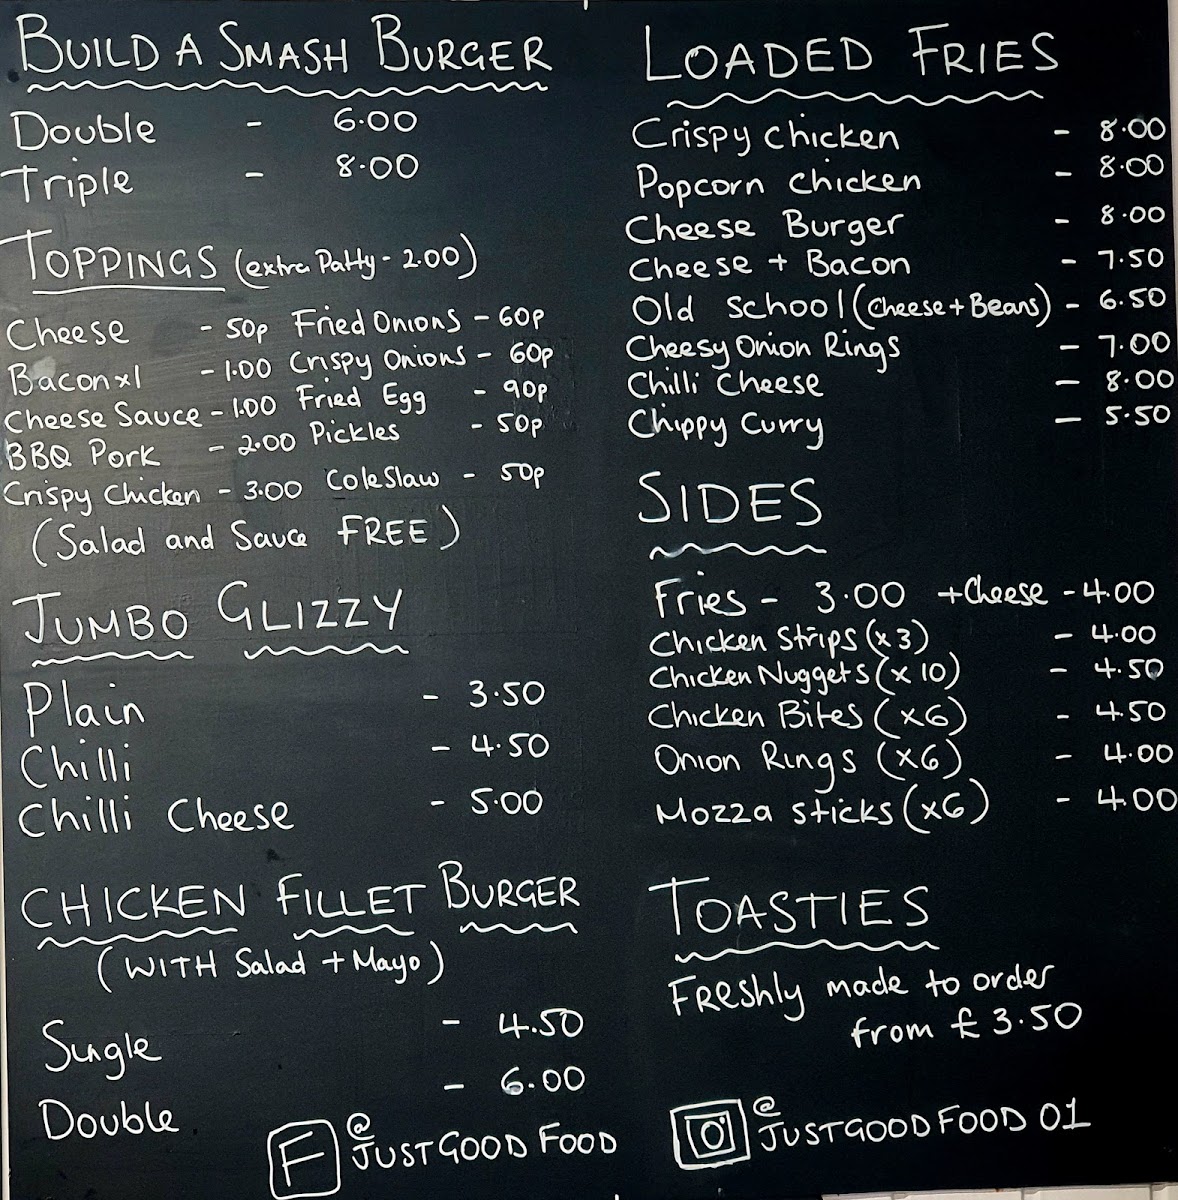 BUILD A SMASH BURGER
Double - 6.00
Triple - 8.00
TOPPINGS (extra Patty - 2.00)
Cheese - 50p Fried Onions - 60p
Bacon x1 - 1.00 Crispy Onions - 60p
Cheese Sauce - 1.00 Fried Egg - 90p
BBQ Pork - 2.00 Pickles - 50p
Crispy Chicken - 3.00 ColeSlaw - 50p
(Salad and Sauce FREE)
JUMBO GLIZZY
Plain - 3.50
Chilli - 4.50
Chilli Cheese - 5.00
CHICKEN FILLET BURGER
(WITH Salad + Mayo)
Single - 4.50
Double - 6.00
F @JUSTGOODFOOD
LOADED FRIES
Crispy Chicken - 8.00
Popcorn Chicken - 8.00
Cheese Burger - 8.00
Cheese + Bacon - 7.50
Old School (Cheese + Beans) - 6.50
Cheesy Onion Rings - 7.00
Chilli Cheese - 8.00
Chippy Curry - 5.50
SIDES
Fries - 3.00 + Cheese - 4.00
Chicken Strips (x3) - 4.00
Chicken Nuggets (x10) - 4.50
Chicken Bites (x6) - 4.50
Onion Rings (x6) - 4.00
Mozza Sticks (x6) - 4.00
TOASTIES
Freshly made to order
from £3.50
@JUSTGOODFOOD01